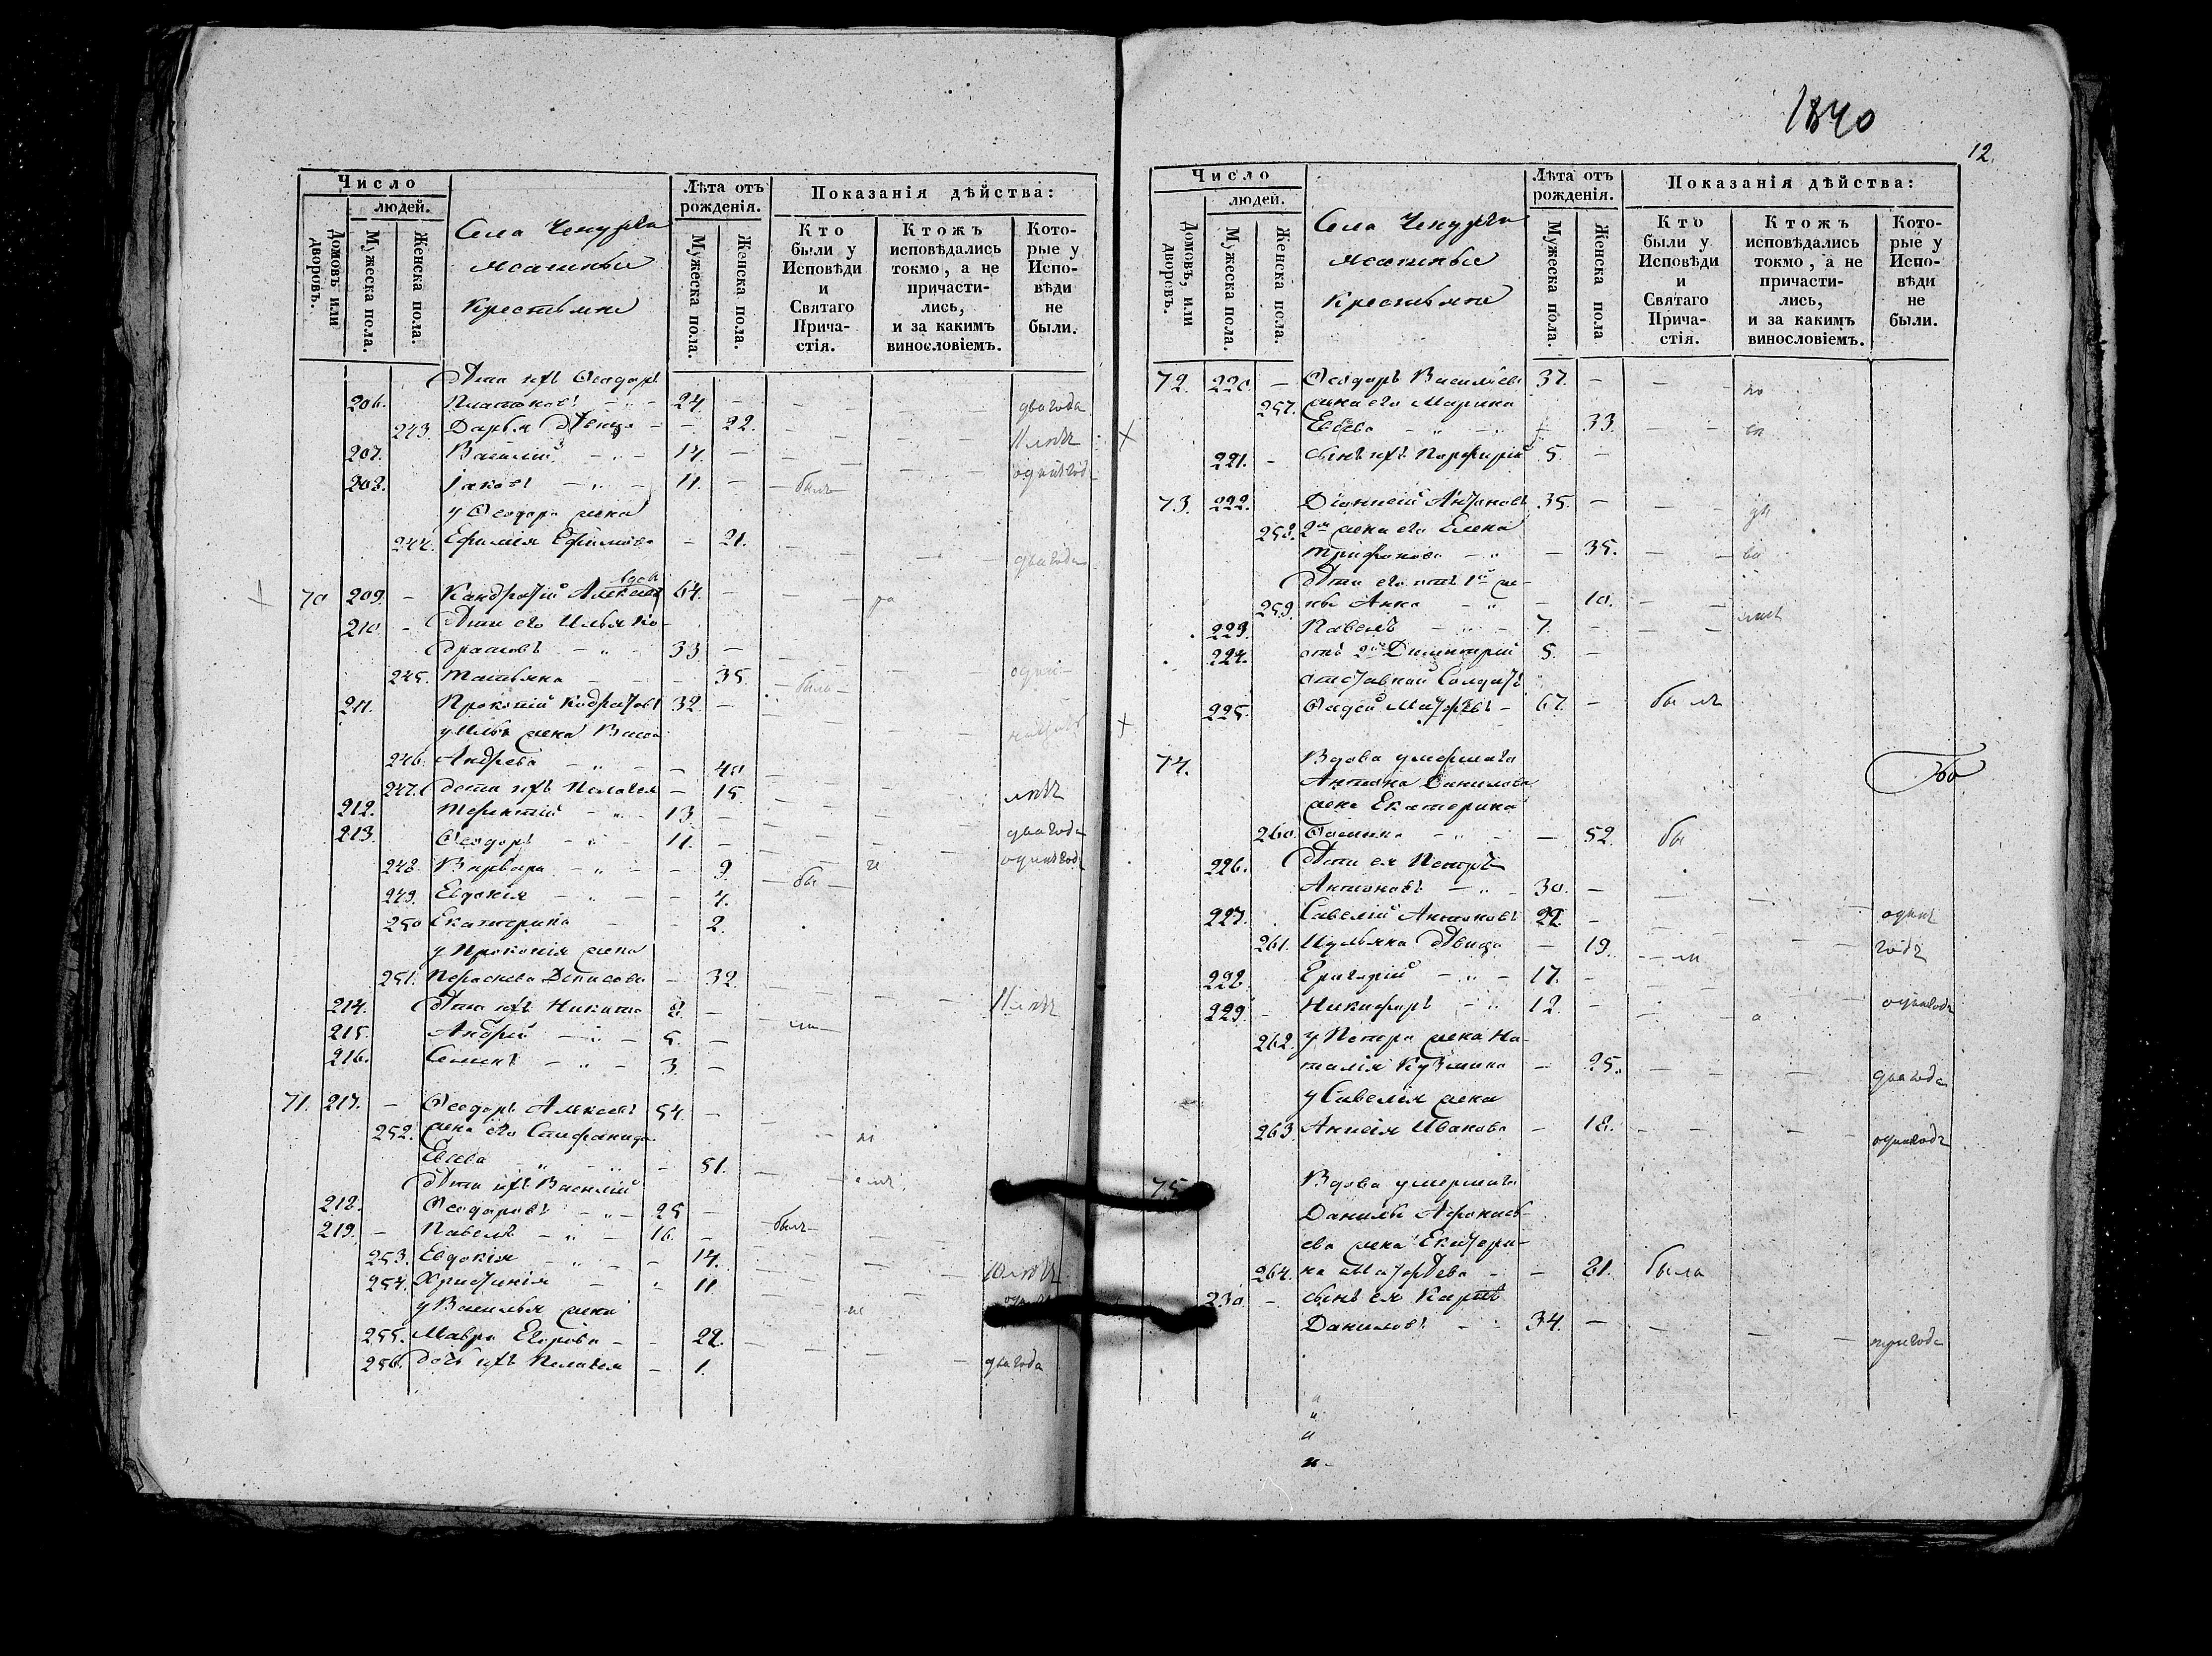 Число
людей.
Домовъ или дворовъ.
Мужеска пола.
Женска пола.
Села Чекурга
ясашные
крестьяне
Лѣта отъ рожденія.
Мужеска пола.
Женска пола.
Показанія дѣйства:
Кто были у Исповѣди и Святаго Причастія.
Ктожъ исповѣдались токмо, а не причастились, и за какимъ винословіемъ.
Которые у Исповѣди не были.
Дѣти ихъ Ѳеодоръ
206. Платоновъ - „ - 24. - два года
243. Дарья дѣвица - - 22.
207. Василий - „ - 14. -
208. Іаковъ - „ - 11. - былъ
у Ѳеодора жена
244. Ефимія Ефимова - 21. два года
вдов
70 209. - Кандратій Алексѣев 64. -
210 - Дѣти его Илья Ко-
дратовъ - „ - 33 -
245. Татьяна - - - 35. была
211. Прокопій Кодратовъ 32. -
у Ильи жена Васса
246. Андреева - „ - - 40
247. дети ихъ Пелагея - 15. лѣтъ
212. Терентій - „ - 13. -
213. Ѳеодоръ - „ - 11. - два года
248. Варвара - „ - - 9. бы одинъ годъ
249. Евдокія - „ - - 4.
250 Екатерина - - 2.
у Прокопія жена
251. Параскева Денисова - 32.
214. Дѣти ихъ Никита 8. -
215. Андрей - „ - 5. -
216. Семенъ - „ - 3. -
71. 217. - Ѳеодоръ Алексѣевъ 54. -
252. жена его Стефанида
Евсева „ „ - 51.
дѣти ихъ Василий
218. Ѳеодоровъ - „ - 25 -
219. - Павелъ - „ - 16. - былъ
253. Евдокія - „ - - 14.
254. Христинія - „ 11
у Василья жена
255. Мавра Егорова - - 22.
256. дочь ихъ Пелагея - 1. два года
1840
12.
Число
людей.
Домовъ, или дворовъ.
Мужеска пола.
Женска пола.
Села Чекурга
ясашные
крестьяне
Лѣта отъ рожденія.
Мужеска пола.
Женска пола
Показанія дѣйства:
Кто были у Исповѣди и Святаго Причастія.
Ктожъ исповѣдались токмо, а не причастились, и за какимъ винословіемъ.
Которые у Исповѣди не были.
72. 220. - Ѳеодоръ Василіевъ 37. - по
257. жена его Марина
Евсева - „ - - 33.
221. - сынъ ихъ Порфирій 5. -
73. 222. Діонисій Антоновъ 35. -
258. 2я жена его Елена
Трифонова - „ - 35.
Дѣти его отъ 1й же-
259. ны Анна - „ - 10.
223. Павелъ - „ - 7. -
224. отъ 2й Димитрій 5. -
отставной Солдатъ
225. Фадей Матѳѣевъ - 67. - былъ
74. Вдова умершаго
Антона Данилова
жена Екатерина
260. Фомина - „ - - 52. бы
226. Дѣти ея Петръ
Антоновъ - „ - 30. -
227. Савелій Антоновъ 22. - одинъ
261. Иульяна дѣвица - 19. годъ
228. Григорій - „ - 17. -
229. - Никифоръ - „ 12. - одингодъ
262. у Петра жена На-
талія Кузмина - 25. два года
у Савелья жена
263. Анисія Иванова - 18. одингодъ
75. Вдова умершаго
Данилы Афонась-
ева жена Екатери-
264. на Матѳѣева - - 81. была
230 - сынъ ея Карпъ
Даниловъ - - 34. - три года